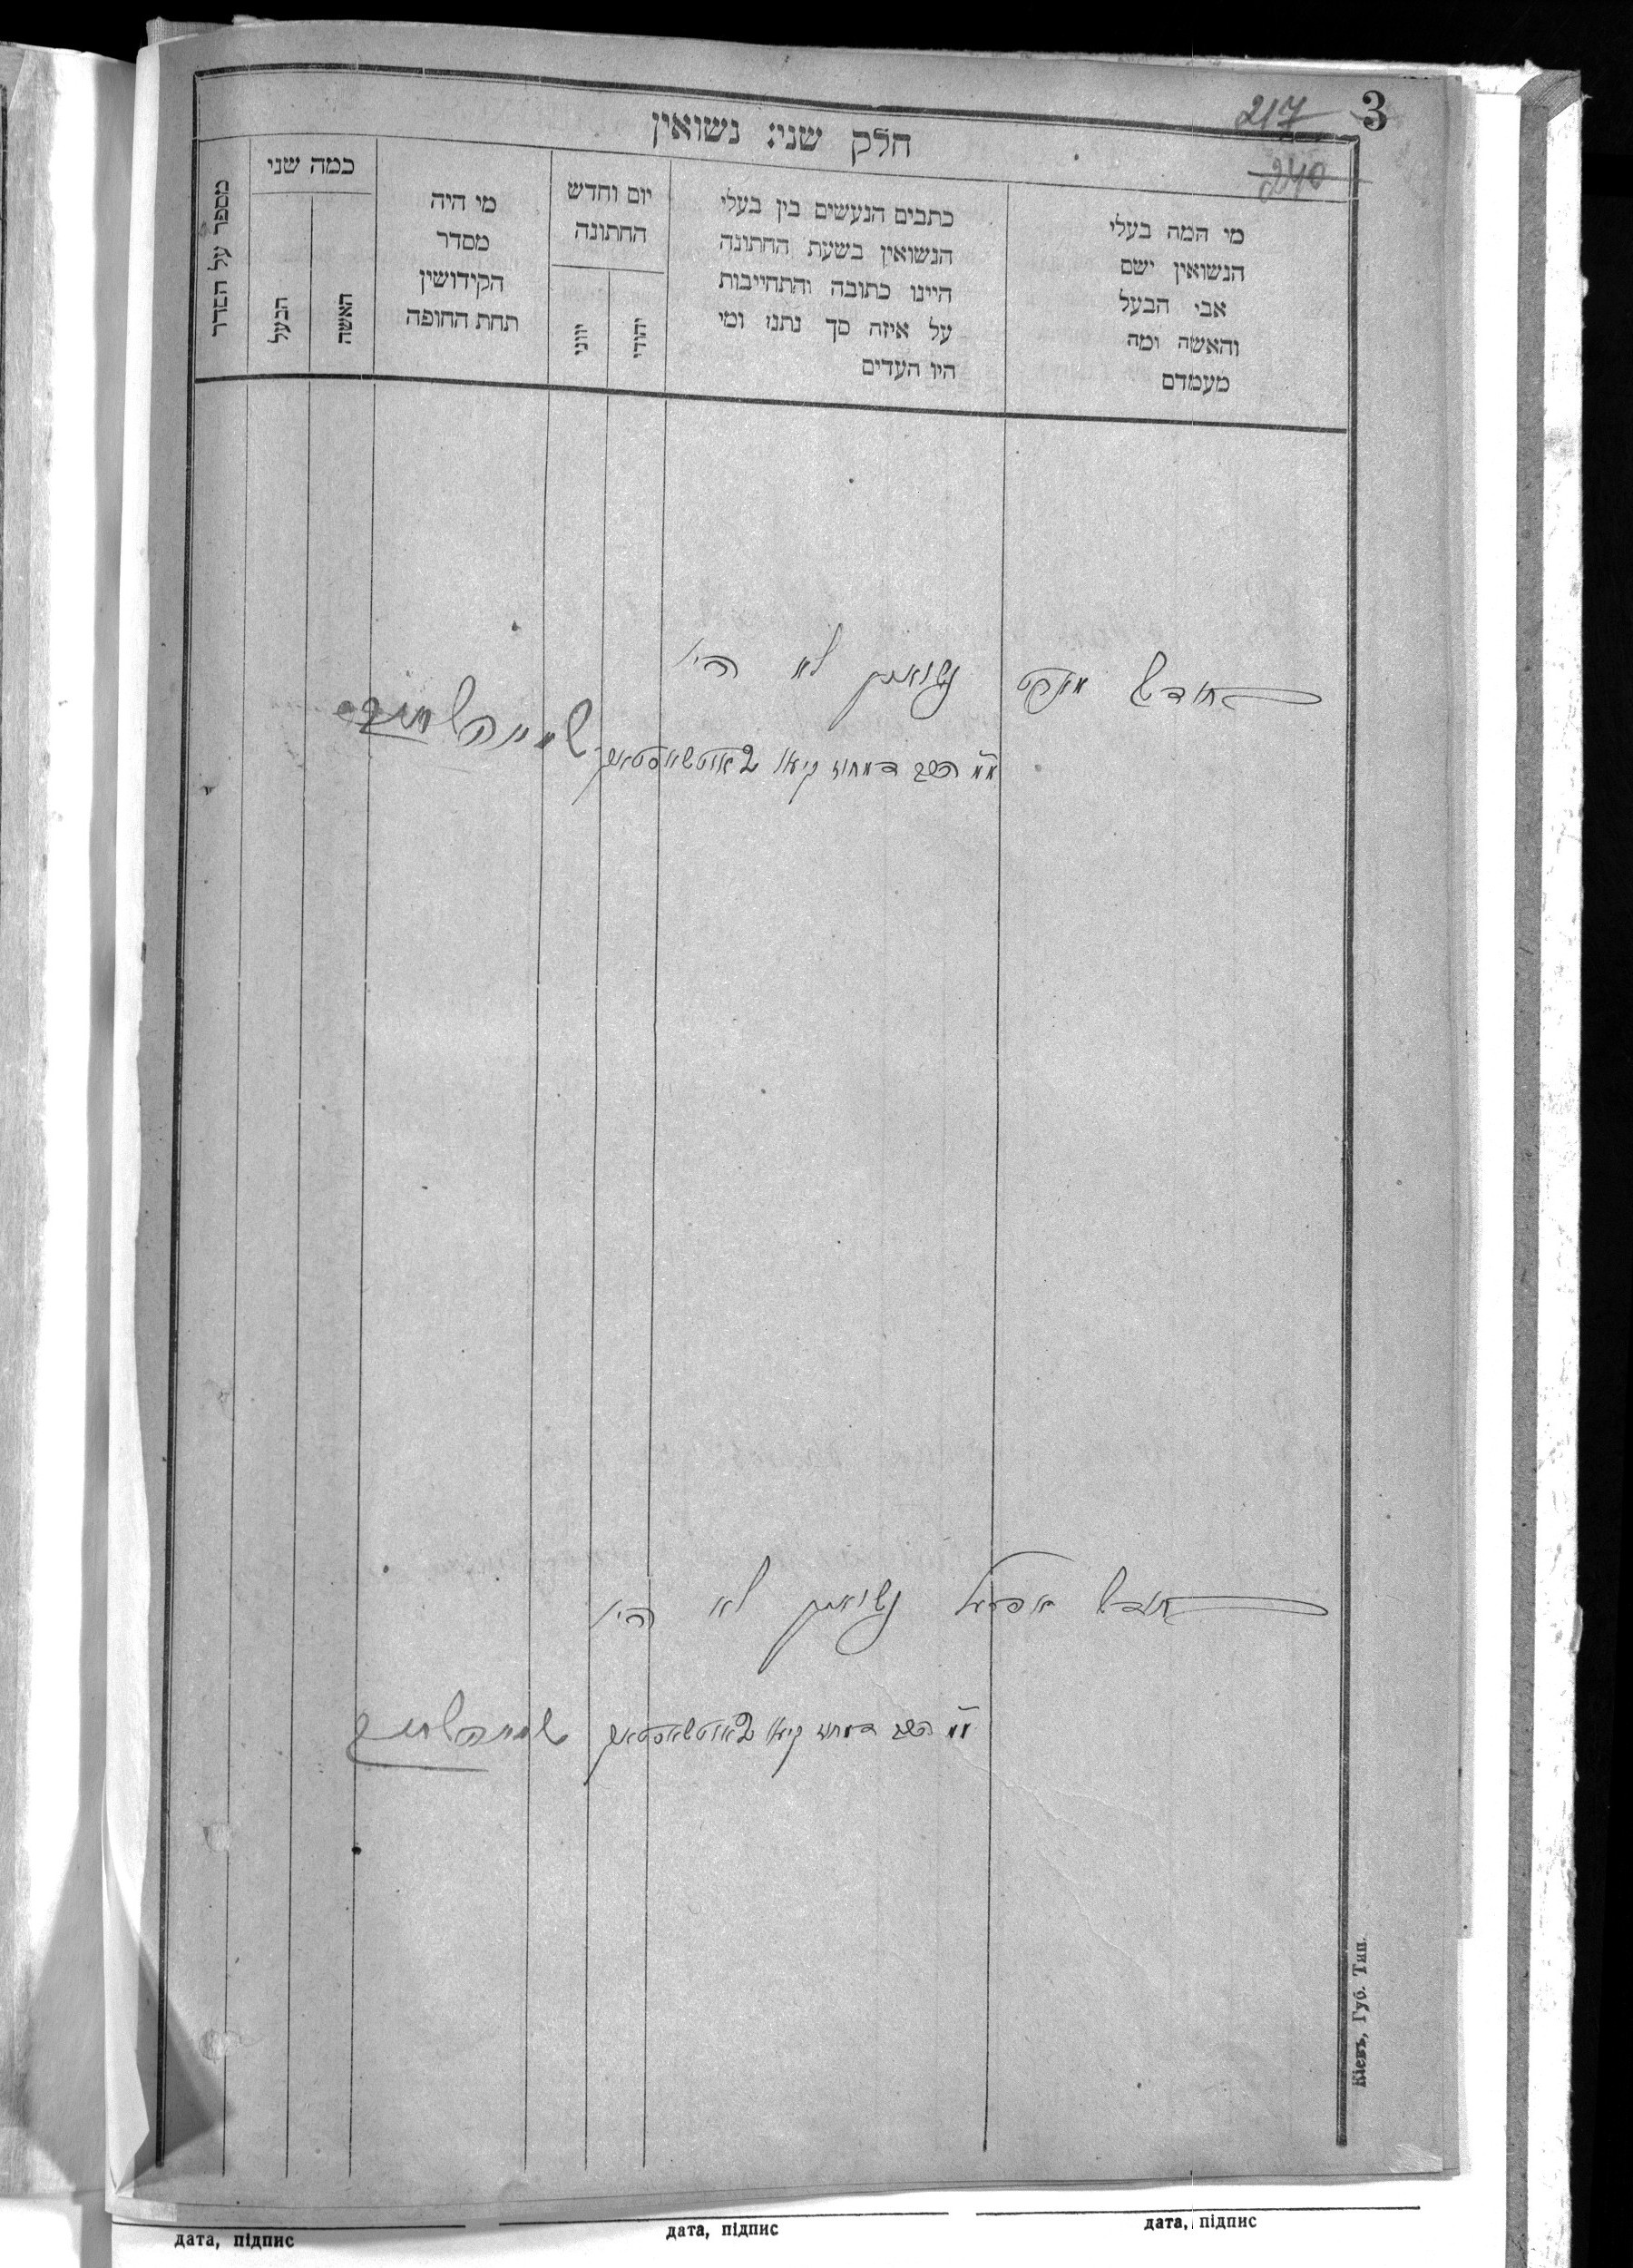 3
217
240
חלק שני: נשואין
מספר על הסדר
כמה שני
הבעל
האשה
מי היה
מסדר
הקידושין
תחת החופה
יום וחדש
החתונה
יווני
יהודי
כתבים הנעשים בין בעלי
הנשואין בשעת החתונה
היינו כתובה והתחייבות
על איזה סך נתנו ומי
היו העדים
מי המה בעלי
הנשואין ישם
אבי הבעל
והאשה ומה
מעמדם
חודש מארט נשואין לא היו
חודש אפריל נשואין לא היו
Кіевъ, Губ. Тип.
дата, підпис
дата, підпис
дата, підпис